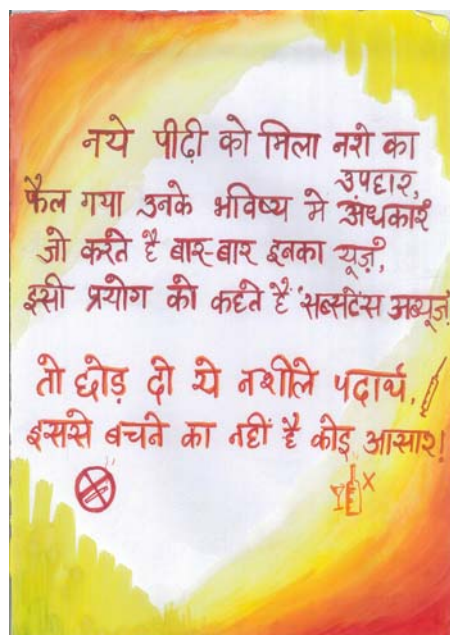 नये पीढ़ी को मिला नशे का
उपहार,
फैल गया उनके भविष्य मे अंधकार
जो करते है बार-बार इनका यूज़,
इसी प्रयोग को कहते हैं 'सब्सटेंस अब्यूज़'
तो छोड़ दो ये नशीले पदार्थ,
इससे बचने का नहीं है कोइ आसार!